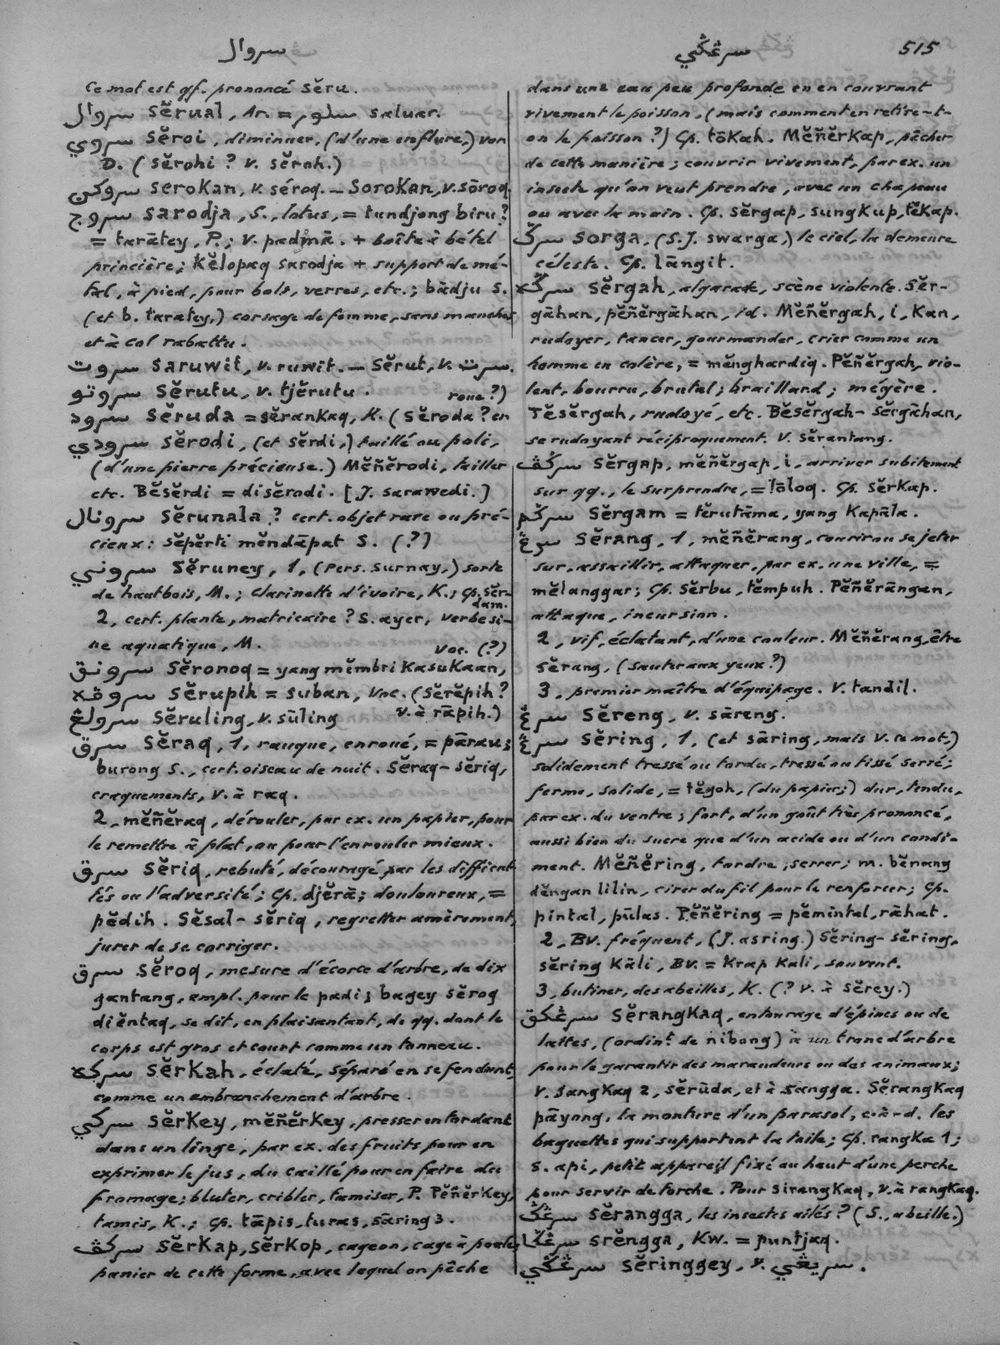 سروال
سرڠݢي 515
Ce mot est qf. prononcé sĕru.
سروال sĕrual, Ar. = سلور saluar.
سروي sĕroi, diminuer, (d'une enflure,) von
D. (sĕrohi? v. sĕroh.)
سروکن serokan, v. séroq. – Sorokan, v. sōroq.
سروج sarodja, S., lotus, = tundjong biru?
= tarātey, P.; v. padmā. + boîte à bétel
princière; kĕlopaq sarodja + support de mé-
tal, à pied, pour bols, verres, etc.; bādju S.
(et b. taratey,) corsage de femme, sans manches
et à col rabattu.
سروت saruwit, v. ruwit. – Sĕrut, v. سرت.
سروتو sĕrutu, v. tjĕrutu. roue?)
سرود sĕruda = sĕrankaq, K. (sĕroda? en
سرودي sĕrodi, (et sĕrdi,) taillé ou poli,
(d'une pierre précieuse.) Mĕñĕrodi, tailler
etc. Bĕsĕrdi = disĕrodi. [J. sarawedi.]
سرونال sĕrunala? cert. objet rare ou pré-
cieux: sĕpĕrti mĕndāpat S. (?)
سروني sĕruney, 1, (Pers. surnay,) sorte
de hautbois, M.; clarinette d'ivoire, K.; Cp. sĕr-
dam.
2, cert. plante, matricaire? S. ayer, verbesi-
ne aquatique, M. voc. (?)
سرونق sĕronoq = yang mĕmbri kasukaan,
سروڤه sĕrupih = suban, voc. (sĕrĕpih?
سرولڠ sĕruling, v. sūling v. à rāpih.)
سرق sĕraq, 1, rauque, enroué, = pārau;
burong S., cert. oiseau de nuit. Sĕraq-sĕriq,
craquements, v. à raq.
2, mĕñĕraq, dérouler, par ex. un papier, pour
le remettre à plat, ou pour l'enrouler mieux.
سرق sĕriq, rebuté, découragé par les difficul-
tés ou l'adversité; Cp. djĕrà; douloureux, =
pĕdih. Sĕsal-sĕriq, regretter amèrement,
jurer de se corriger.
سرق sĕroq, mesure d'écorce d'arbre, de dix
gantang, empl. pour le padi; bagey sĕroq
diĕntaq, se dit, en plaisantant, de qq. dont le
corps est gros et court comme un tonneau.
سرکه sĕrkah, éclaté, séparé en se fendant,
comme un embranchement d'arbre.
سرکي sĕrkey, mĕñĕrkey, presser en tordant
dans un linge, par ex. des fruits pour en
exprimer le jus, du caillé pour en faire du
fromage; bluter, cribler, tamiser, P. Pĕñĕrkey,
tamis, K.; Cp. tāpis, turas, sāring 3.
سرکڤ sĕrkap, sĕrkop, cageon, cage à poule,
panier de cette forme, avec lequel on pêche
dans une eau peu profonde en en couvrant
vivement le poisson, (mais comment en retire-t-
on le poisson?) Cp. tōkah. Mĕñĕrkap, pêcher
de cette manière; couvrir vivement, par ex. un
insecte qu'on veut prendre, avec un chapeau
ou avec la main. Cp. sĕrgap, sungkup, tĕkap.
سرݢ sorga, (S.J. swarga) le ciel, la demeure
céleste. Cp. lāngit.
سرݢه sĕrgah, algarade, scène violente. Sĕr-
gāhan, pĕñĕrgāhan, id. Mĕñĕrgah, i, kan,
rudoyer, tancer, gourmander, crier comme un
homme en colère, = mĕnghardiq. Pĕñĕrgah, vio-
lent, bourru, brutal; braillard; mégère.
Tĕsĕrgah, rudoyé, etc. Bĕsĕrgah-sĕrgāhan,
se rudoyant réciproquement. V. sĕrantang.
سرݢڤ sĕrgap, mĕñĕrgap, i, arriver subitement
sur qq., le surprendre, = lōloq. Cp. sĕrkap.
سرݢم sĕrgam = tĕrutāma, yang kapāla.
سرڠ sĕrang, 1, mĕñĕrang, courir ou se jeter
sur, assaillir, attaquer, par ex. une ville, =
mĕlanggar; Cp. sĕrbu, tĕmpuh. Pĕñĕrāngan,
attaque, incursion.
2, vif, éclatant, d'une couleur. Mĕñĕrang, être
sĕrang, (sauter aux yeux?)
3, premier maître d'équipage. v. tandil.
سرڠ sĕreng, v. sāreng.
سرڠ sĕring, 1, (et sāring, mais v. ce mot,)
solidement tressé ou tordu, tressé ou tissé serré;
ferme, solide, = tĕgoh, (du papier;) dur, tendu,
par ex. du ventre; fort, d'un goût très prononcé,
aussi bien du sucre que d'un acide ou d'un condi-
ment. Mĕñĕring, tordre, serrer; m. bĕnang
dĕngan lilin, cirer du fil pour le renforcer; Cp.
pintal, pūlas. Pĕñĕring = pĕmintal, rāhat.
2, Bv. fréquent, (J. asring.) Sĕring-sĕring,
sĕring kāli, Bv. = krap kali, souvent.
3, butiner, des abeilles, K. (? v. à sĕrey.)
سرڠکق sĕrangkaq, entourage d'épines ou de
lattes, (ordint. de nibong) à un tronc d'arbre
pour le garantir des maraudeurs ou des animaux;
v. sangkaq 2, sĕrūda, et à sangga. Sĕrangkaq
pāyong, la monture d'un parasol, c.-à-d. les
baguettes qui supportent la toile; Cp. rangka 1;
s. api, petit appareil fixé au haut d'une perche
pour servir de torche. Pour sirangkaq, v. à rangkaq.
سرڠݢ sĕrangga, les insectes ailés? (S., abeille.)
سرڠݢا srĕngga, Kw. = puntjaq.
سرڠݢي sĕringgey, v. سريڠݢي.